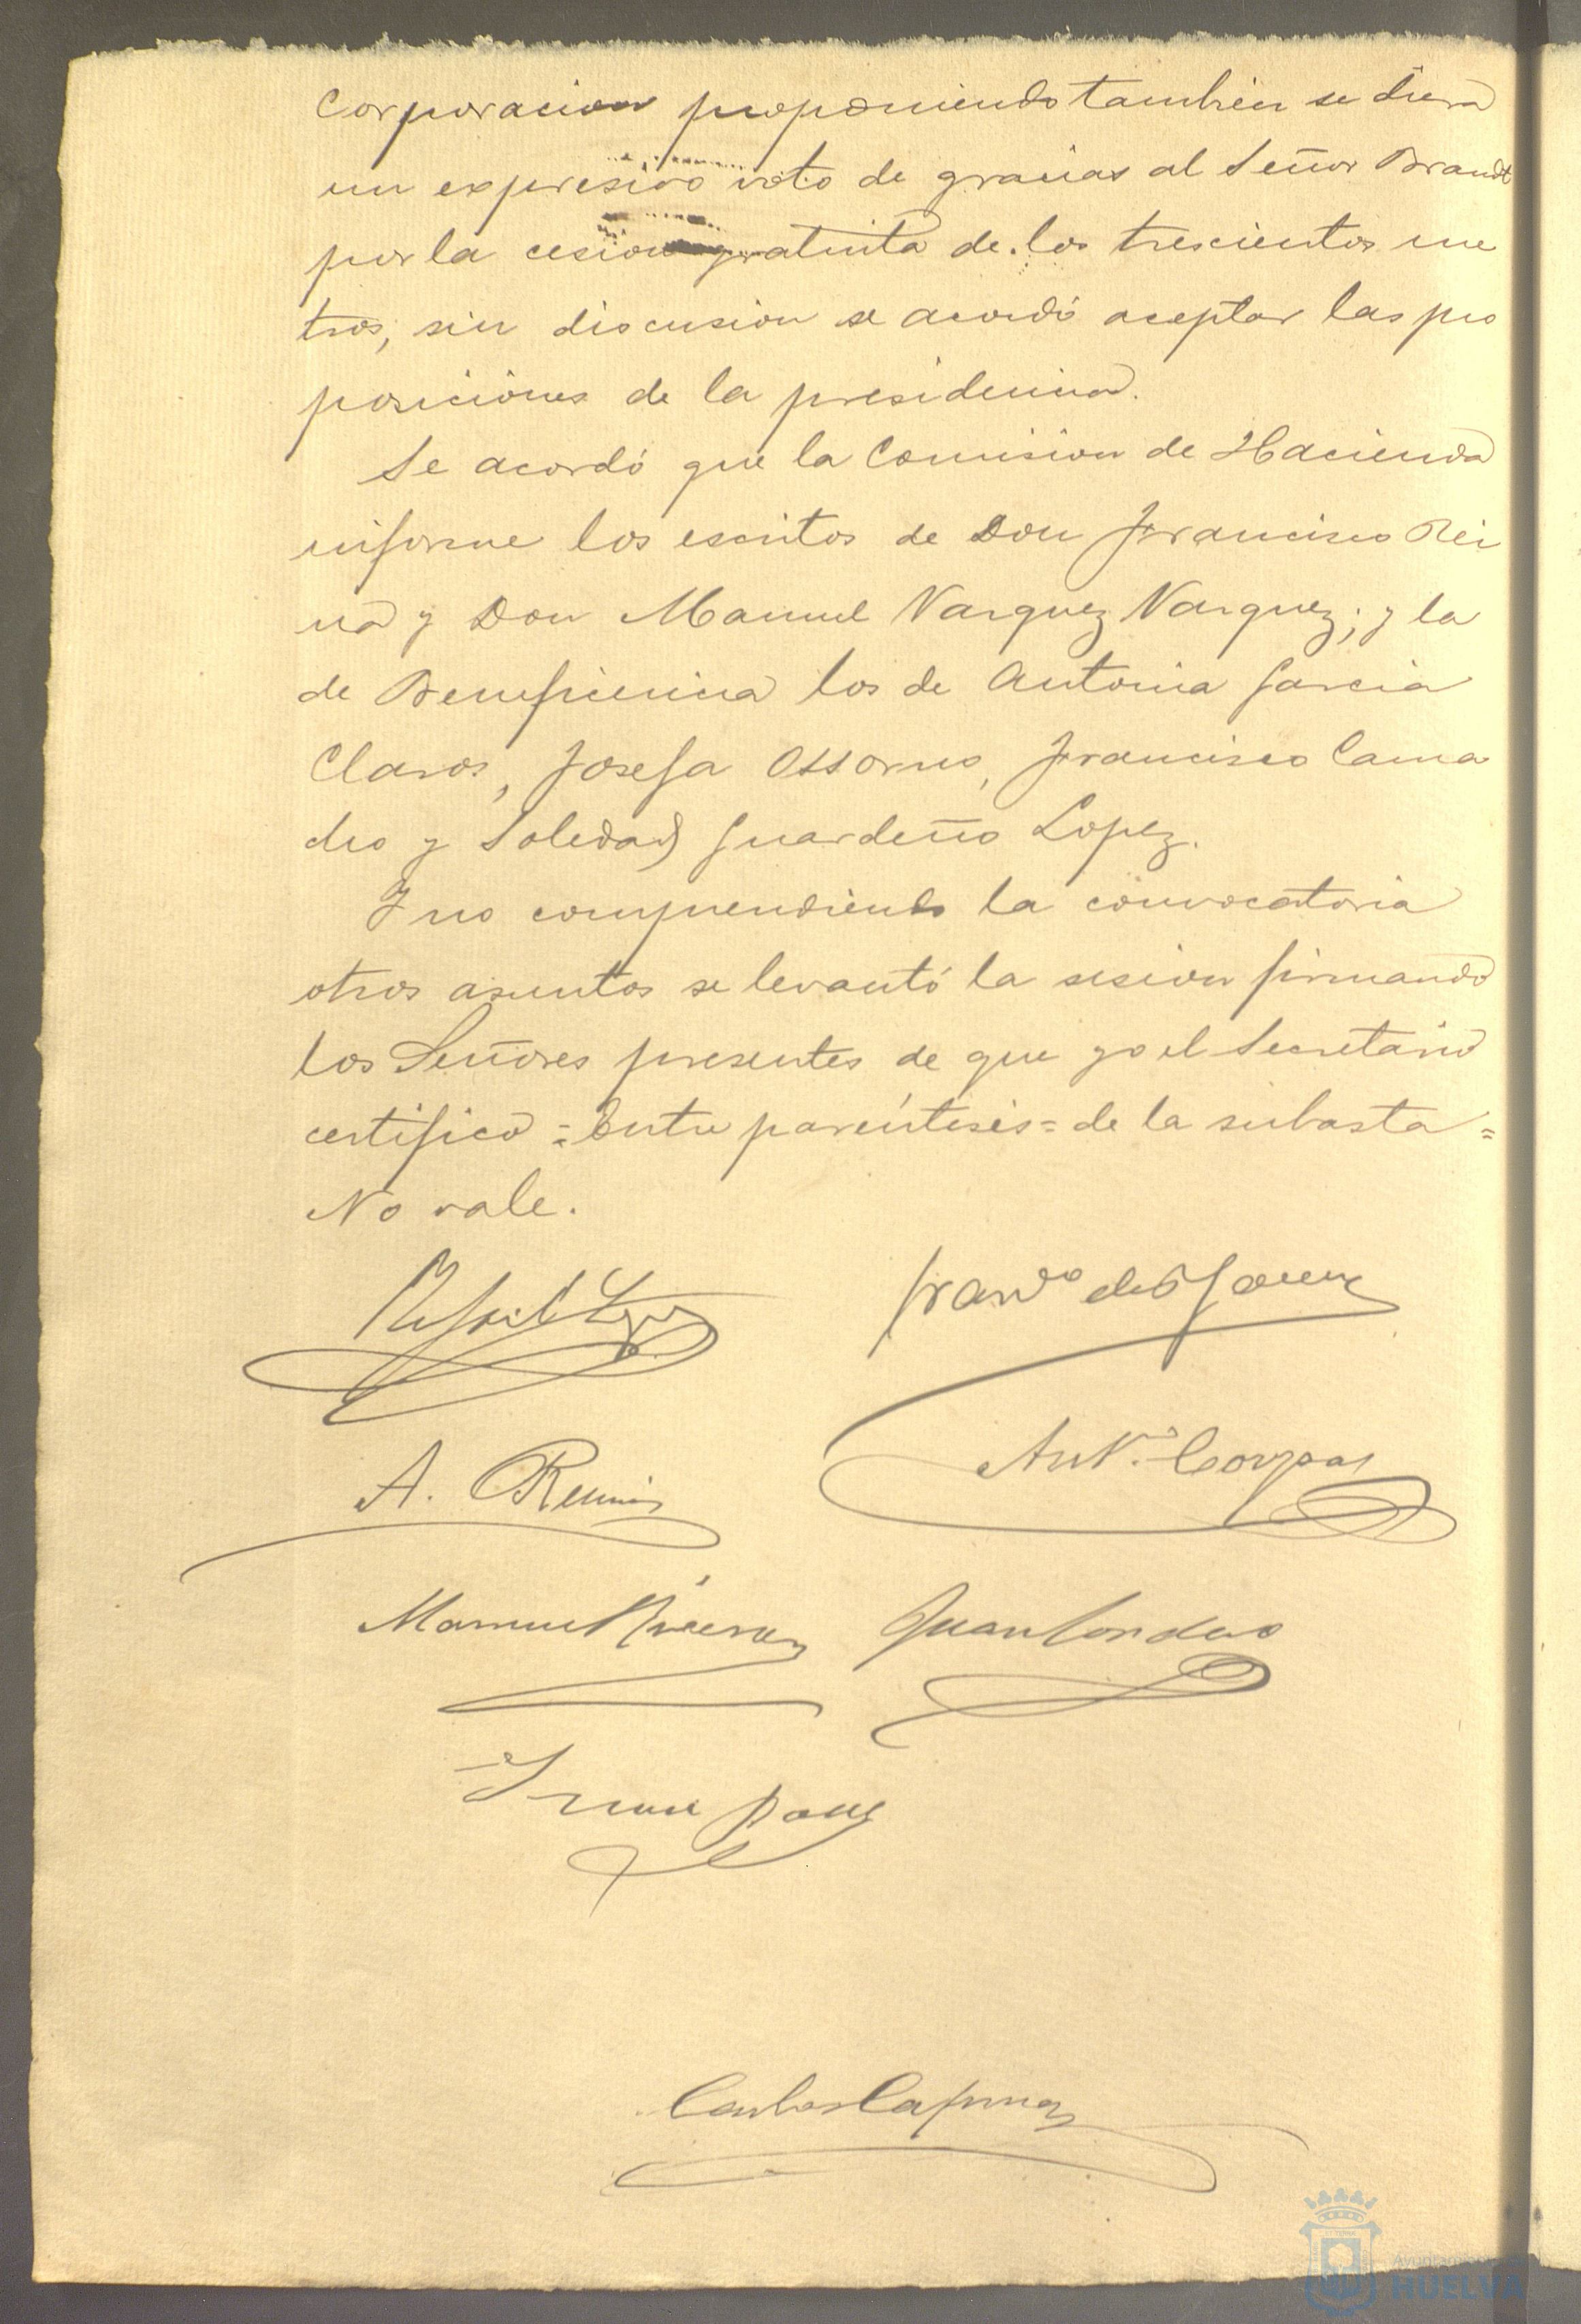 Corporacion proponiendo tambien se diera
un expresivo voto de gracias al Señor Brandt
por la cesion gratuita de los trescientos me
tros, sin discusion se acordó aceptar las pro
posiciones de la presidencia.
Se acordó que la Comision de Hacienda
informe los escritos de Don Francisco Rei
na y Don Manuel Vazquez Vazquez; y la
de Beneficencia los de Antonia Garcia
Claros, Josefa Ossorno, Francisco Cama
cho y Soledad Guardeño Lopez.
Y no comprendiendo la convocatoria
otros asuntos se levantó la sesion firmando
los Señores presentes de que yo el Secretario
certifico = Entre paréntesis = de la subasta =
No vale.
Rafael
A.
Antº. Corpas
Manuel
Juan Cordero
Carlos
Ayuntamiento
HUELVA